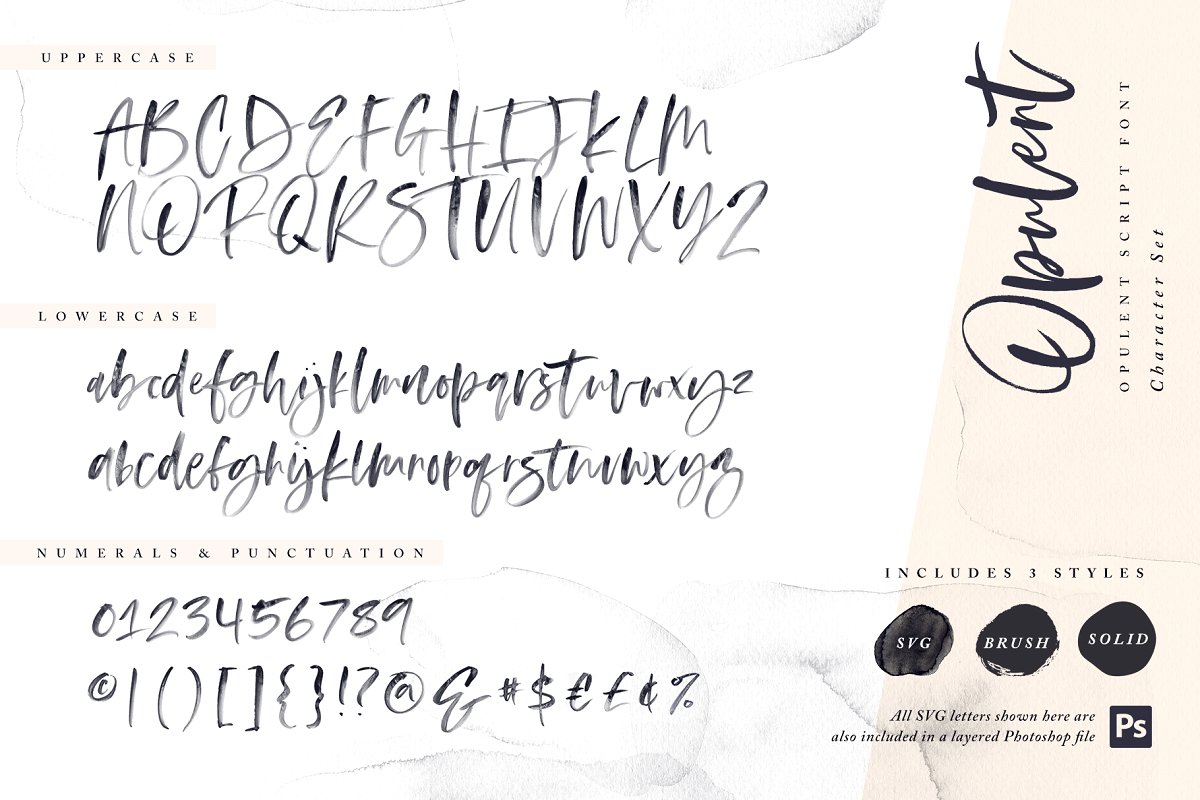 UPPERCASE
ABCDEFGHIJKLM
NOPQRSTUVWXYZ
LOWERCASE
abcdefghijklmnopqrstuvwxyz
abcdefghijklmnopqrstuvwxyz
NUMERALS & PUNCTUATION
0123456789
©|()[]{}!?@&#$€£¢%
Opulent
OPULENT SCRIPT FONT
Character Set
INCLUDES 3 STYLES
SVG BRUSH SOLID
All SVG letters shown here are
also included in a layered Photoshop file
Ps